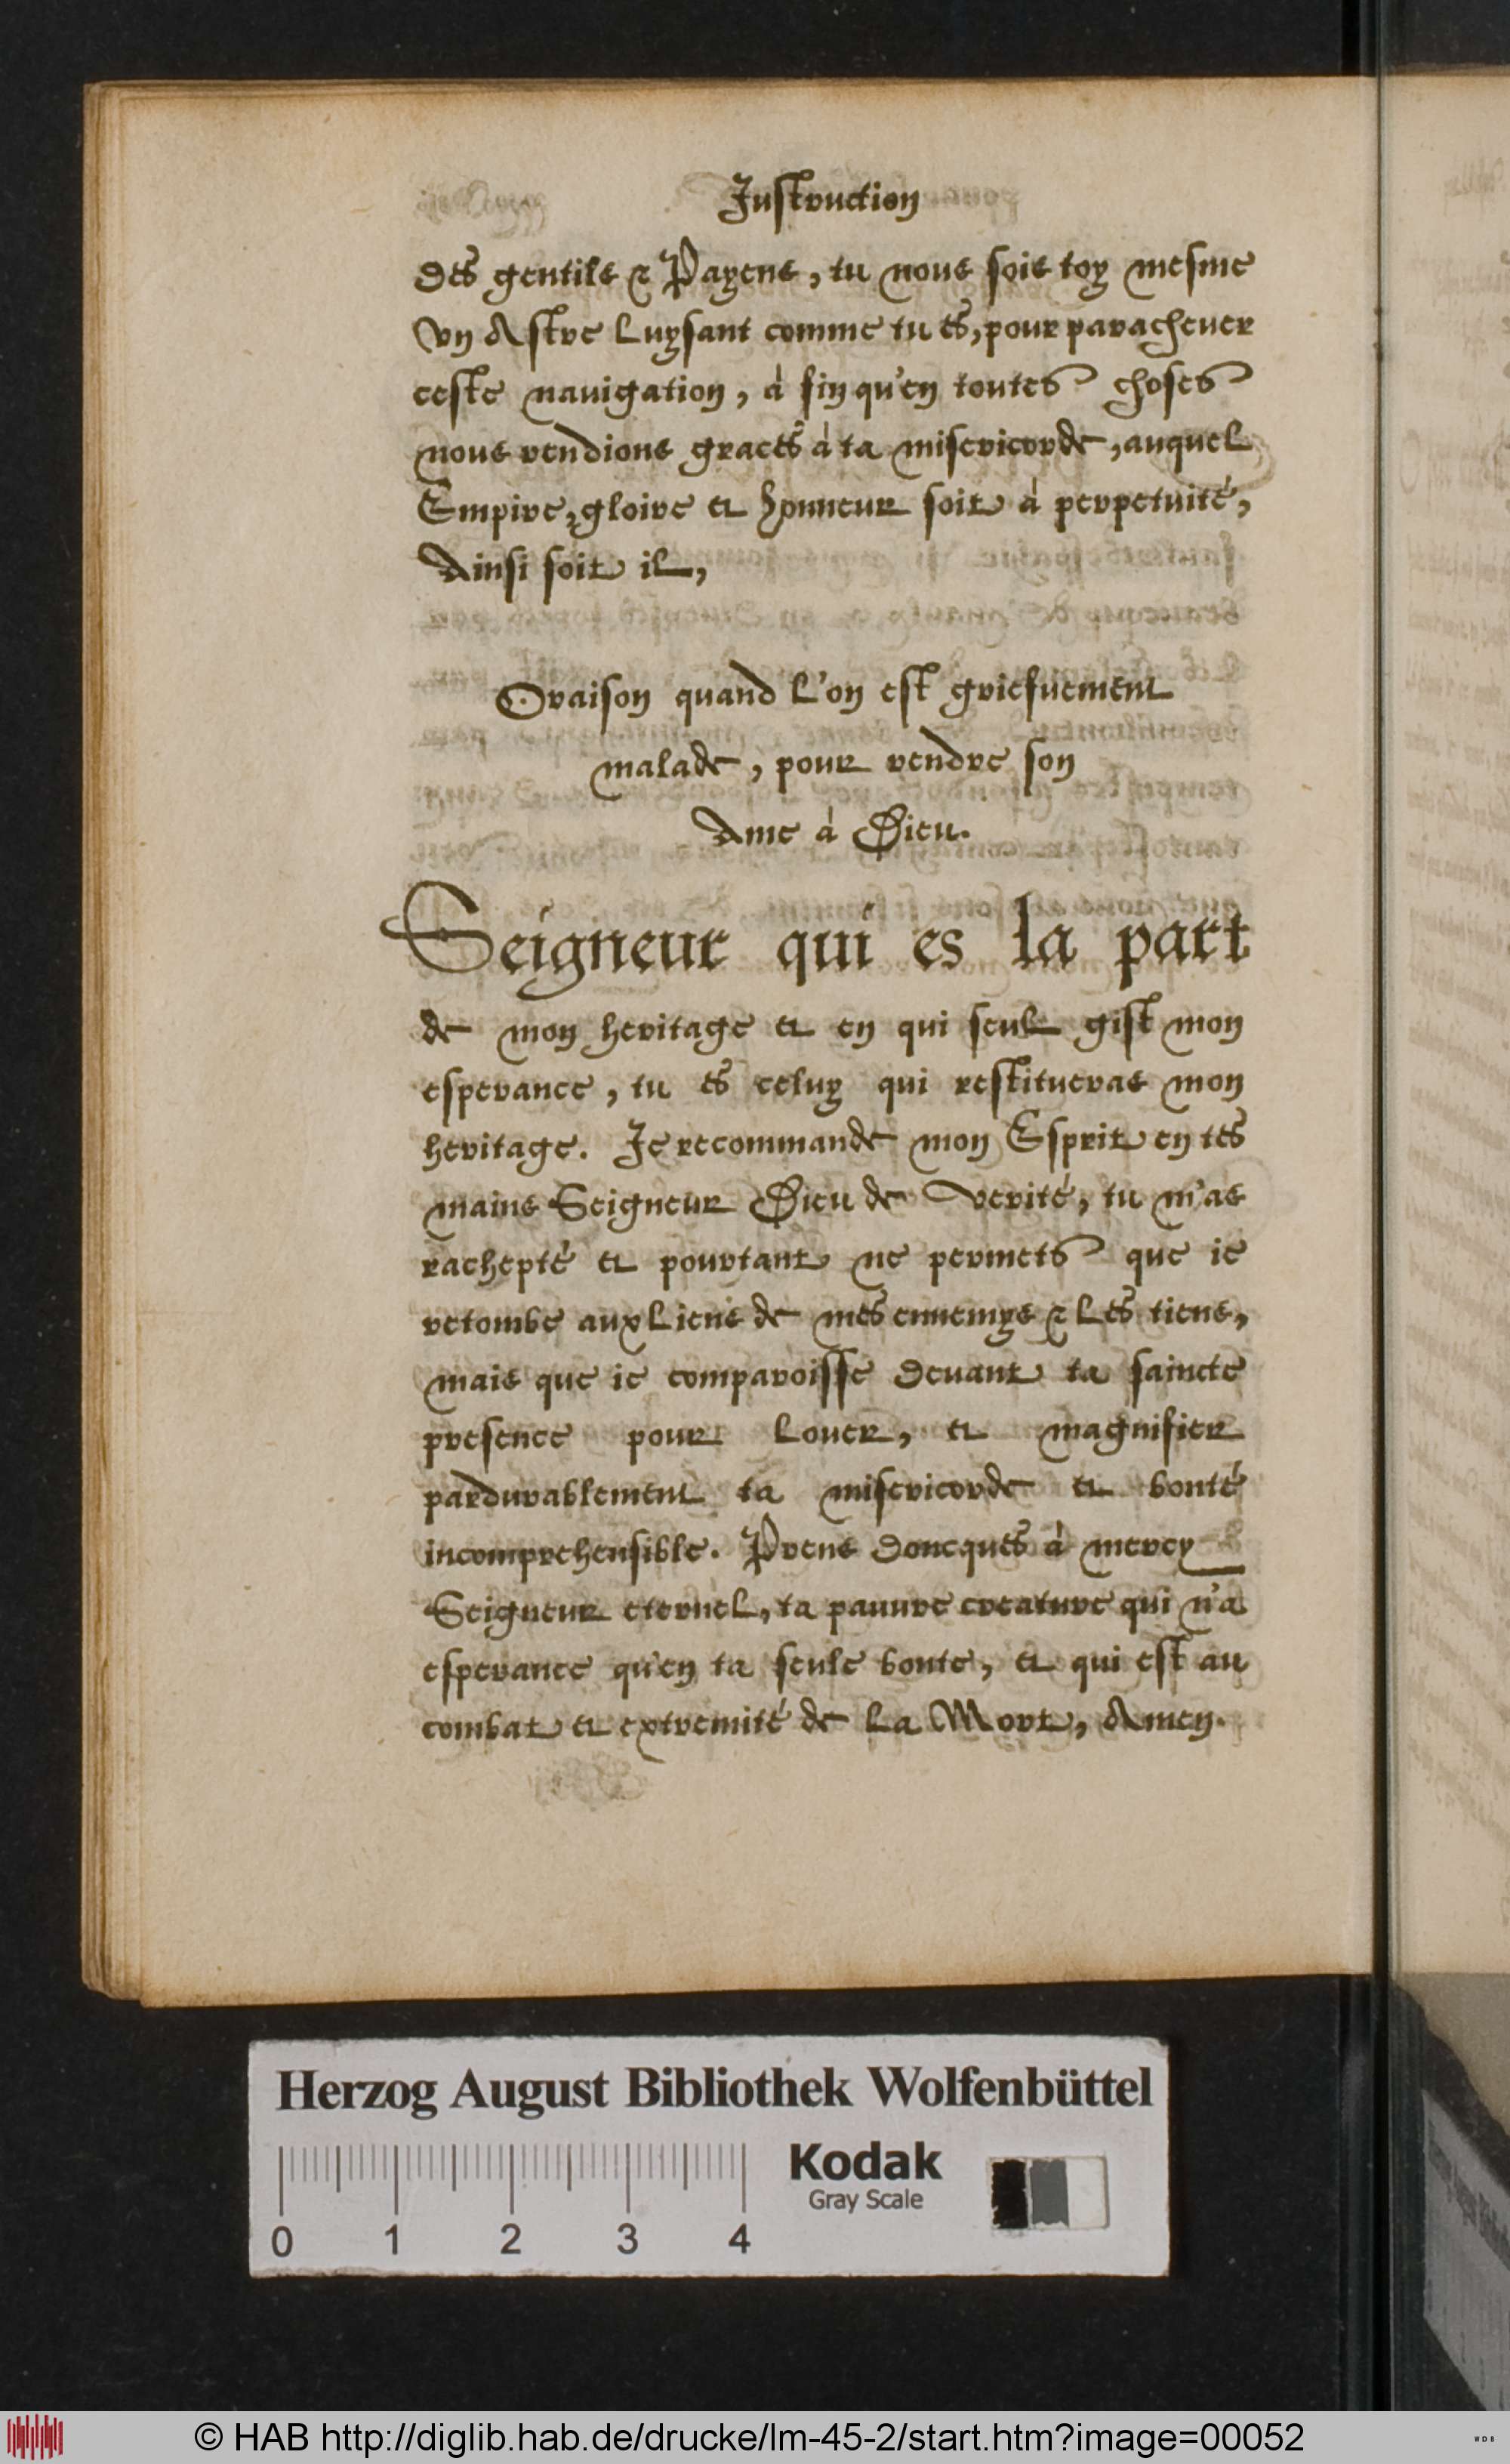 Instruction
des gentils & Payens, tu nous sois toy mesme
vn Astre luysant comme tu es, pour parachever
ceste nauigation, à fin qu'en toutes choses
nous rendions graces à ta misericorde, auquel
Empire, gloire et honneur soit à perpetuité,
Ainsi soit il,
Oraison quand l'on est griefuement
malade, pour rendre son
Ame à Dieu.
Seigneur qui es la part
de mon heritage et en qui seul gist mon
esperance, tu es celuy qui restitueras mon
heritage. Je recommande mon Esprit en tes
mains Seigneur Dieu de verité, tu m'as
rachepté et pourtant ne permets que ie
retombe aux liens de mes ennemys & les tiens,
mais que ie comparoisse deuant ta saincte
presence pour louer, et magnifier
pardurablement ta misericorde et bonté
incomprehensible. Prens doncques à mercy
Seigneur eternel, ta pauure creature qui n'a
esperance qu'en ta seule bonte, et qui est au
combat et extremité de la Mort, Amen.
Herzog August Bibliothek Wolfenbüttel
Kodak
Gray Scale
0 1 2 3 4
© HAB http://diglib.hab.de/drucke/lm-45-2/start.htm?image=00052
WDB